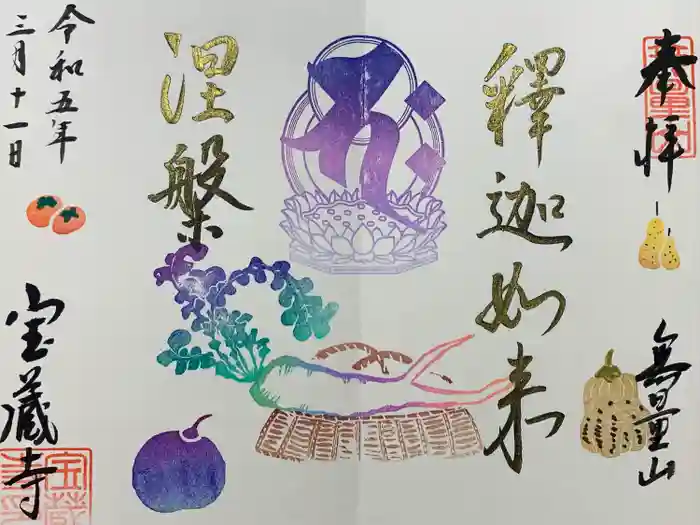 奉拝
無量山
釋迦如来
涅槃
令和五年
三月十一日
宝蔵寺
宝蔵